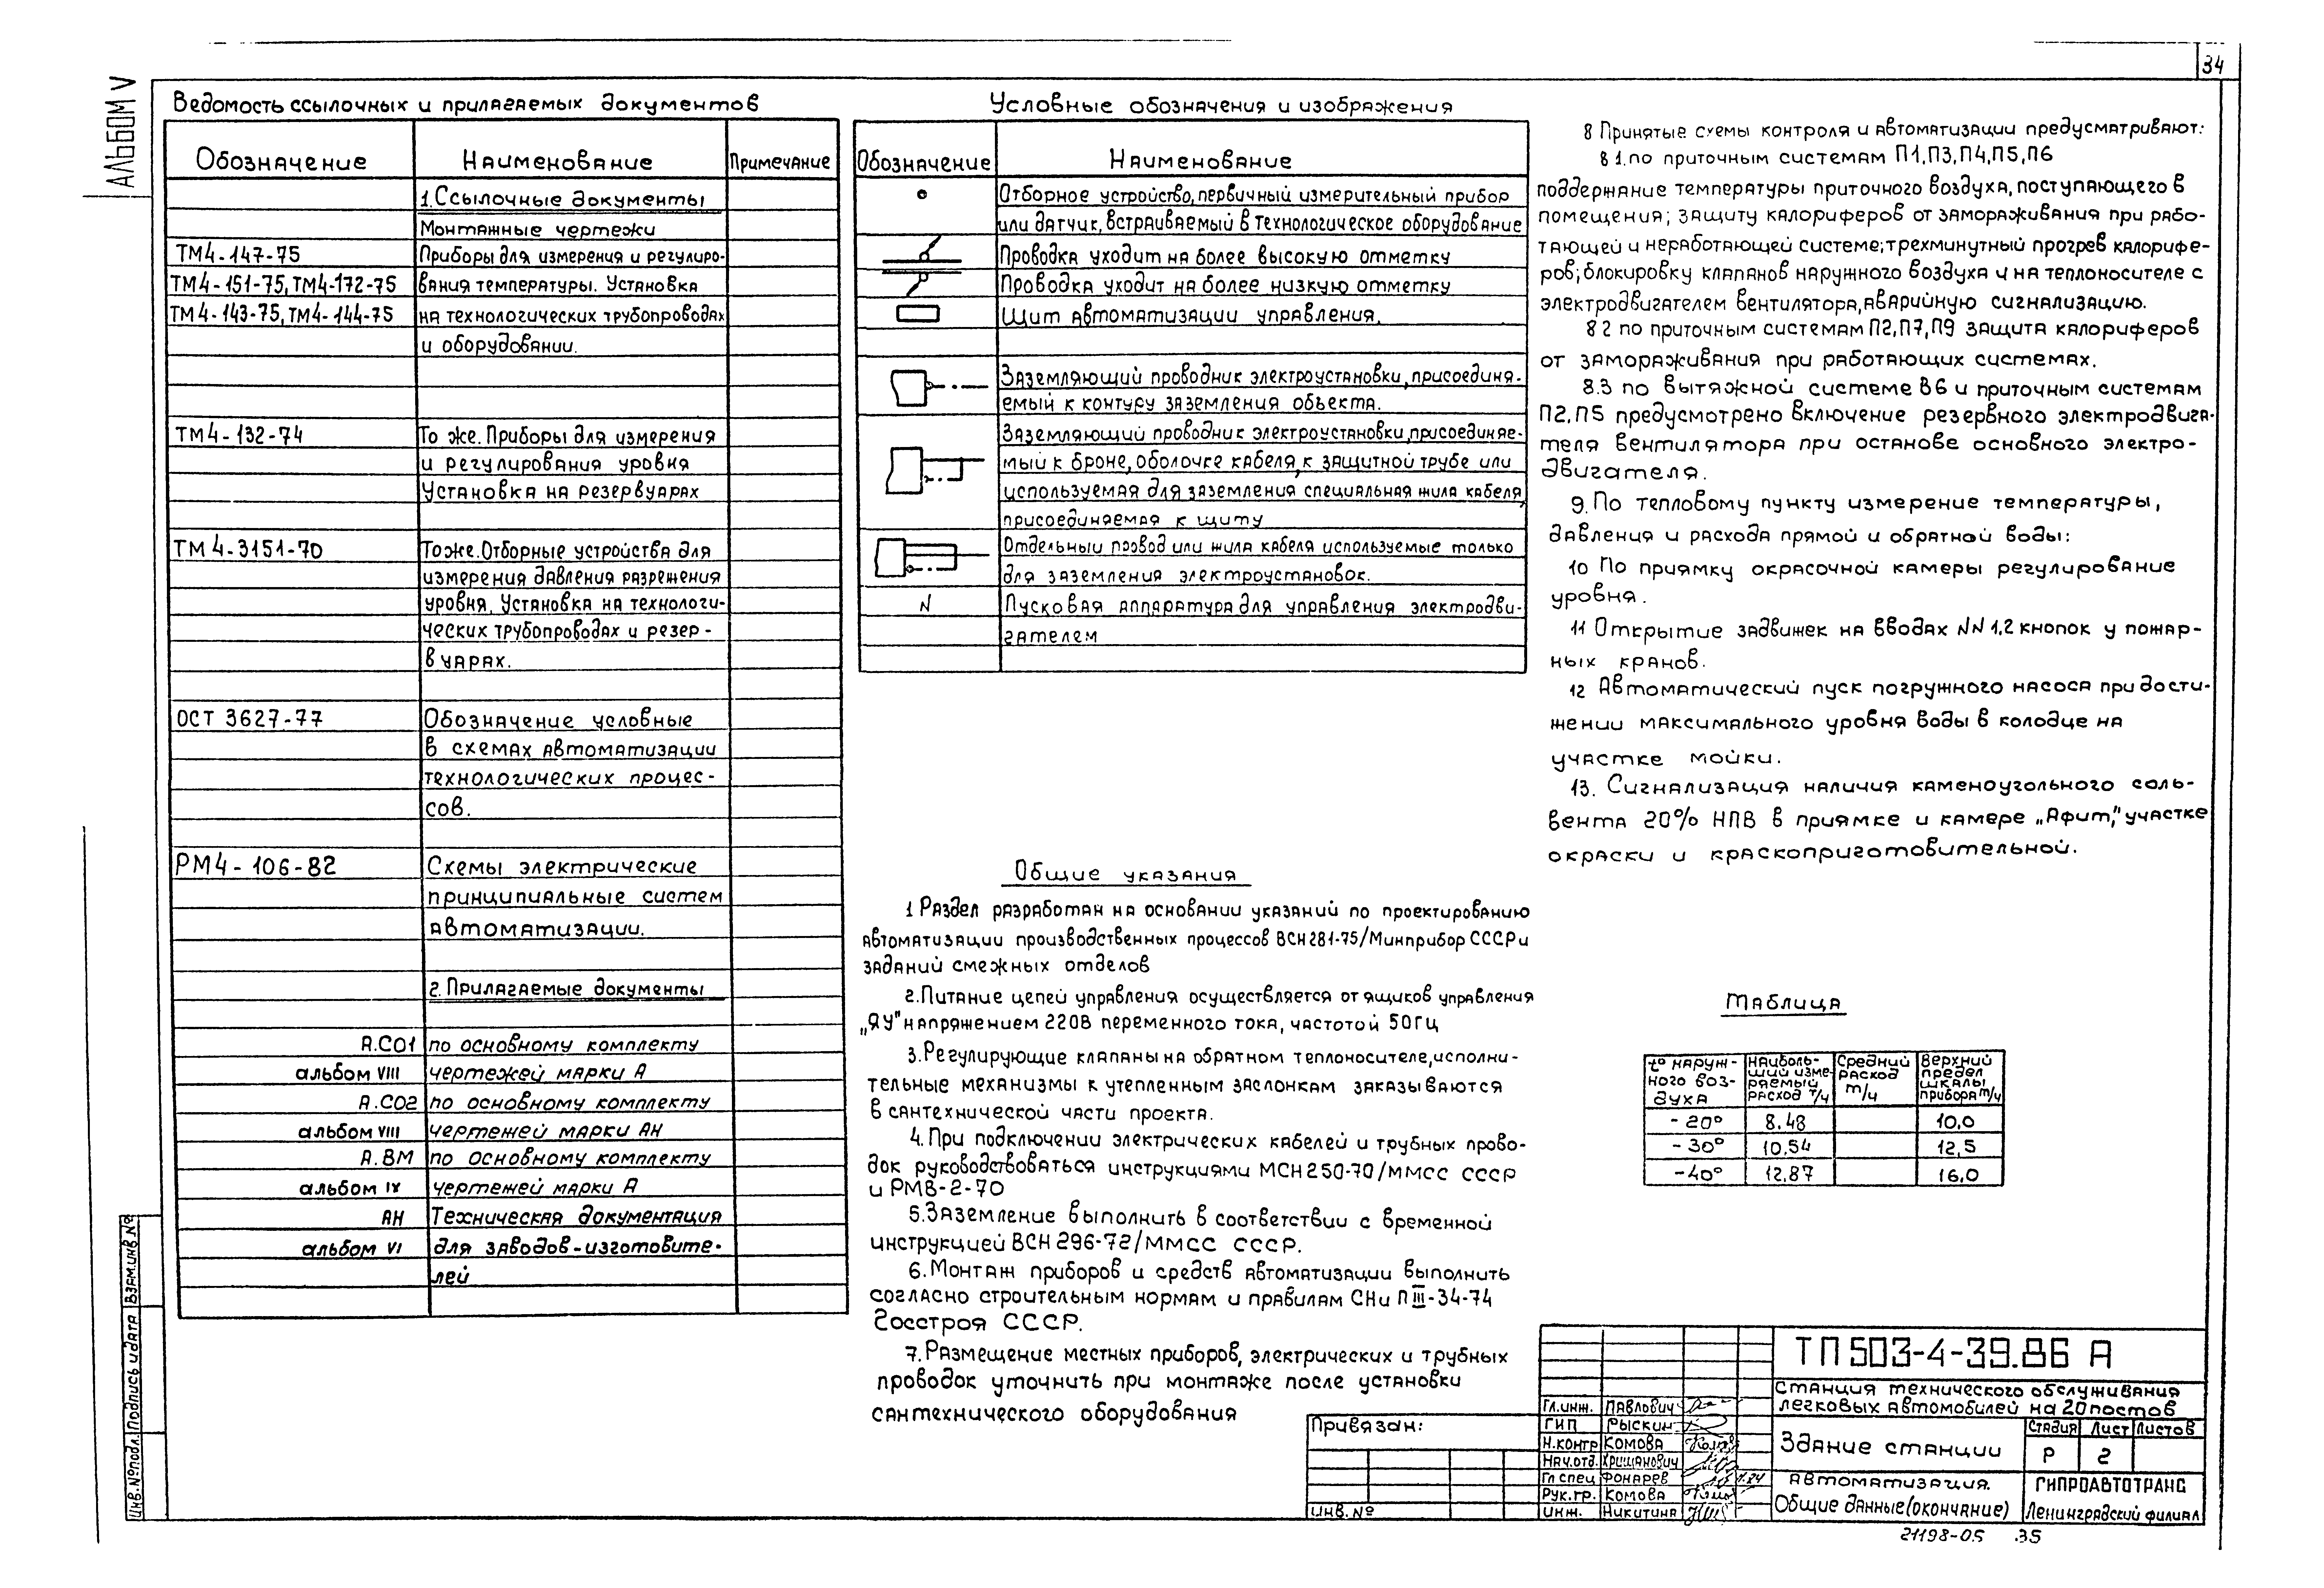 34
АЛЬБОМ V
Ведомость ссылочных и прилагаемых документов
Обозначение Наименование Примечание
1. Ссылочные документы
Монтажные чертежи
ТМ4-147-75 Приборы для измерения и регулиро-
ТМ4-151-75, ТМ4-172-75 вания температуры. Установка
ТМ4-143-75, ТМ4-144-75 на технологических трубопроводах
и оборудовании.
ТМ4-132-74 То же. Приборы для измерения
и регулирования уровня
Установка на резервуарах
ТМ4-3151-70 То же. Отборные устройства для
измерения давления разрежения
уровня. Установка на технологи-
ческих трубопроводах и резер-
вуарах.
ОСТ 3627-77 Обозначение условные
в схемах автоматизации
технологических процес-
сов.
РМ4-106-82 Схемы электрические
принципиальные систем
автоматизации.
2. Прилагаемые документы
А.СО1 по основному комплекту
альбом VIII чертежей марки А
А.СО2 по основному комплекту
альбом VIII чертежей марки АН
А.ВМ по основному комплекту
альбом IX чертежей марки А
АН Техническая документация
альбом VI для заводов-изготовите-
лей
Условные обозначения и изображения
Обозначение Наименование
Отборное устройство, первичный измерительный прибор
или датчик, встраиваемый в технологическое оборудование
Проводка уходит на более высокую отметку
Проводка уходит на более низкую отметку
Щит автоматизации управления.
Заземляющий проводник электроустановки, присоединя-
емый к контуру заземления объекта.
Заземляющий проводник электроустановки, присоединяе-
мый к броне, оболочке кабеля, к защитной трубе или
используемая для заземления специальная жила кабеля,
присоединяемая к щиту
Отдельный провод или жила кабеля используемые только
для заземления электроустановок.
N Пусковая аппаратура для управления электродви-
гателем
Общие указания
1 Раздел разработан на основании указаний по проектированию
автоматизации производственных процессов ВСН 281-75/Минприбор СССР и
заданий смежных отделов
2. Питание цепей управления осуществляется от ящиков управления
„ЯУ" напряжением 220В переменного тока, частотой 50Гц
3. Регулирующие клапаны на обратном теплоносителе, исполни-
тельные механизмы к утепленным заслонкам заказываются
в сантехнической части проекта.
4. При подключении электрических кабелей и трубных прово-
док руководствоваться инструкциями МСН 250-70/ММСС СССР
и РМ8-2-70
5. Заземление выполнить в соответствии с временной
инструкцией ВСН 296-72/ММСС СССР.
6. Монтаж приборов и средств автоматизации выполнить
согласно строительным нормам и правилам СНиП III-34-74
Госстроя СССР.
7. Размещение местных приборов, электрических и трубных
проводок уточнить при монтаже после установки
сантехнического оборудования
8 Принятые схемы контроля и автоматизации предусматривают:
8 1. по приточным системам П1, П3, П4, П5, П6
поддержание температуры приточного воздуха, поступающего в
помещения; защиту калориферов от замораживания при рабо-
тающей и неработающей системе; трехминутный прогрев калорифе-
ров; блокировку клапанов наружного воздуха и на теплоносителе с
электродвигателем вентилятора, аварийную сигнализацию.
8 2 по приточным системам П2, П7, П9 защита калориферов
от замораживания при работающих системах.
8.3 по вытяжной системе В6 и приточным системам
П2, П5 предусмотрено включение резервного электродвига-
теля вентилятора при останове основного электро-
двигателя.
9. По тепловому пункту измерение температуры,
давления и расхода прямой и обратной воды:
10 По приямку окрасочной камеры регулирование
уровня.
11 Открытие задвижек на вводах NN 1,2 кнопок у пожар-
ных кранов.
12 Автоматический пуск погружного насоса при дости-
жении максимального уровня воды в колодце на
участке мойки.
13. Сигнализация наличия каменоугольного соль-
вента 20% НПВ в приямке и камере „Афит", участке
окраски и краскоприготовительной.
Таблица
t° наруж-
ного воз-
духа
Наиболь-
ший изме-
ряемый
расход т/ч
Средний
расход
т/ч
Верхний
предел
шкалы
прибора т/ч
-20° 8.48 10.0
-30° 10.54 12,5
-40° 12.87 16,0
ТП 503-4-39.86 А
Станция технического обслуживания
легковых автомобилей на 20 постов
Здание станции
Стадия Лист Листов
Р 2
Автоматизация.
Общие данные (окончание)
ГИПРОАВТОТРАНС
Ленинградский филиал
Гл.инж. Павлович
ГИП Рыскин
Н.контр Комова
Нач.отд. Хришанович
Гл спец Фонарев
Рук.гр. Комова
Инж. Никитина
Привязан:
Инв. №
Инв. № подл. Подпись и дата Взам.инв №
21198-05 35